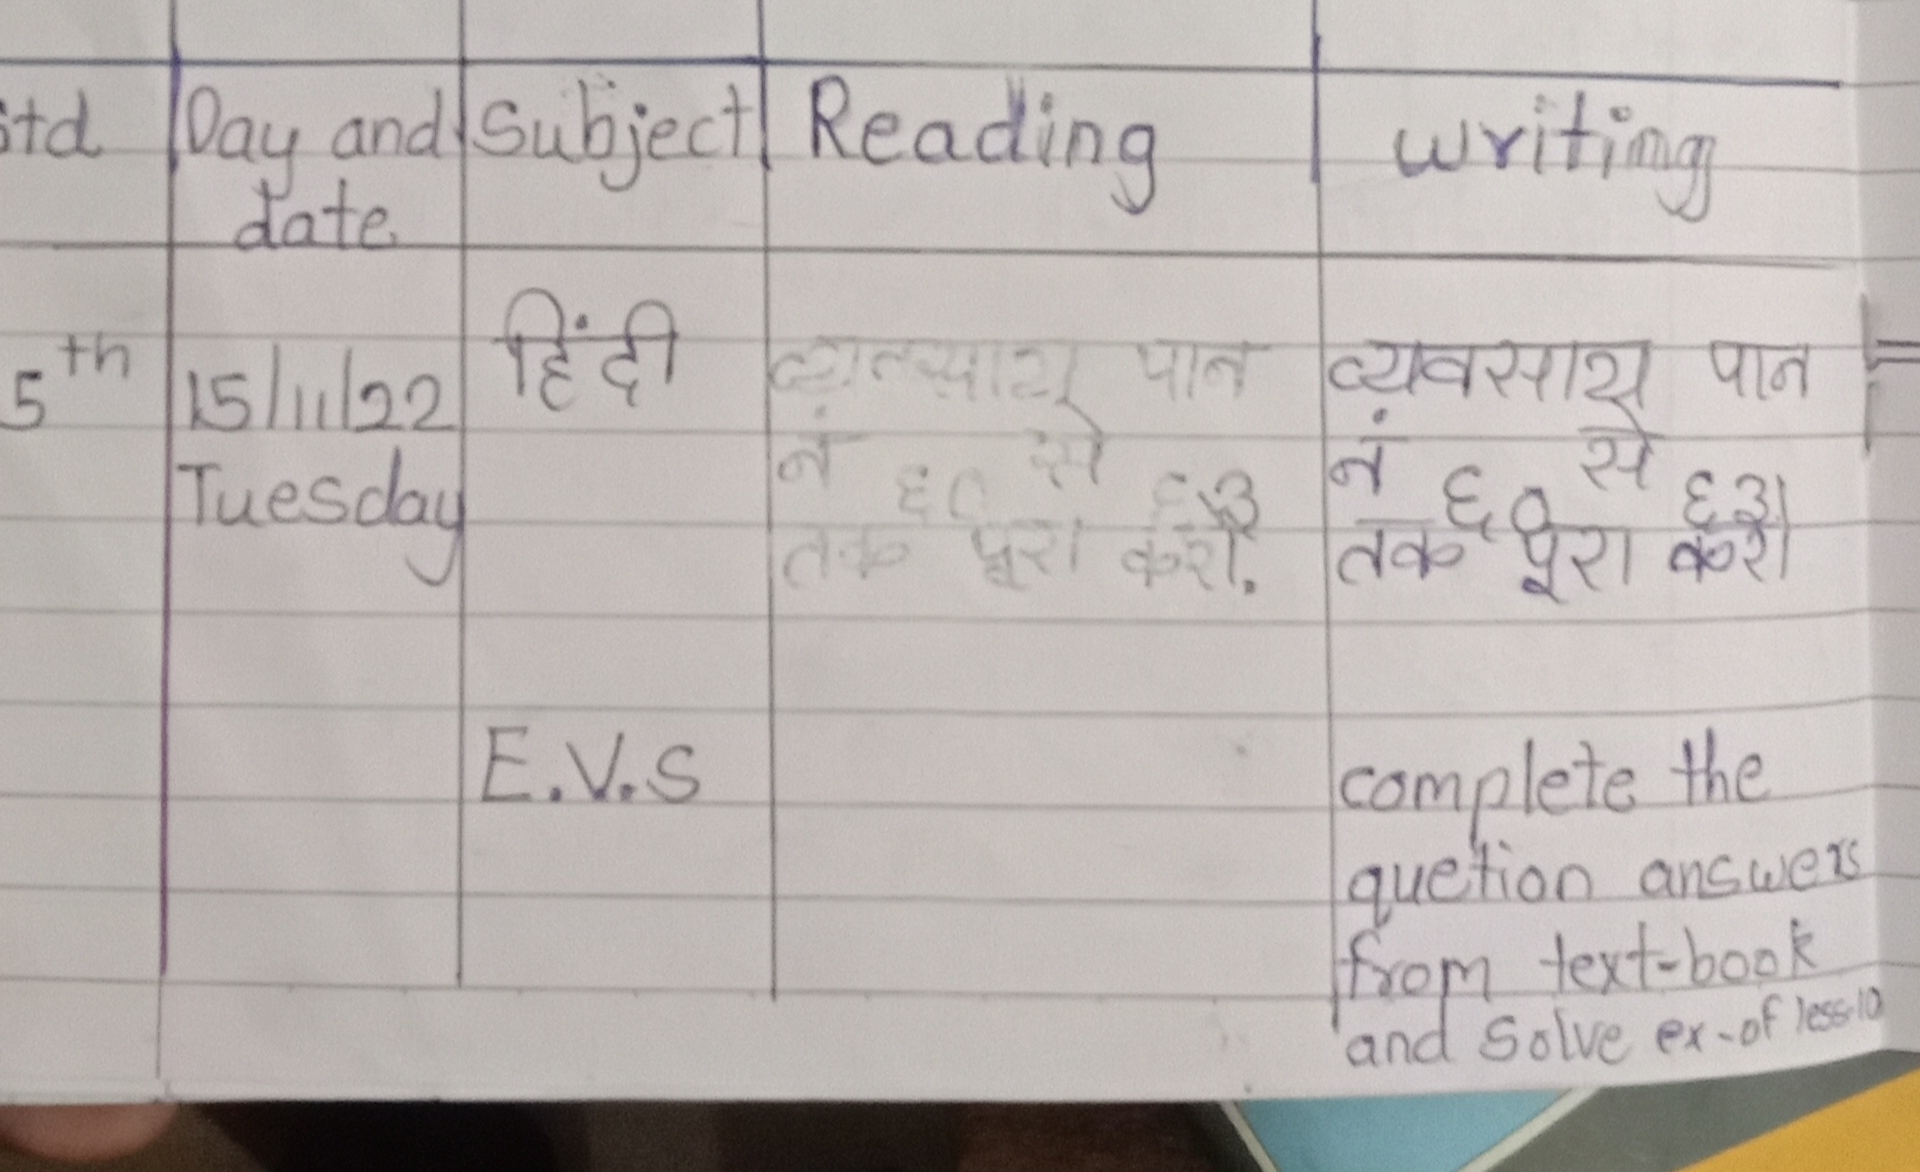 Std Day and date Subject Reading writing
5th 15/11/22 Tuesday हिंदी
पान
नं ६० से ६३
तक पूरा करो.
व्यवसाय पान
नं ६० से ६३
तक पूरा करो
E.V.S
complete the
quetion answers
from text-book
and Solve ex-of less-10